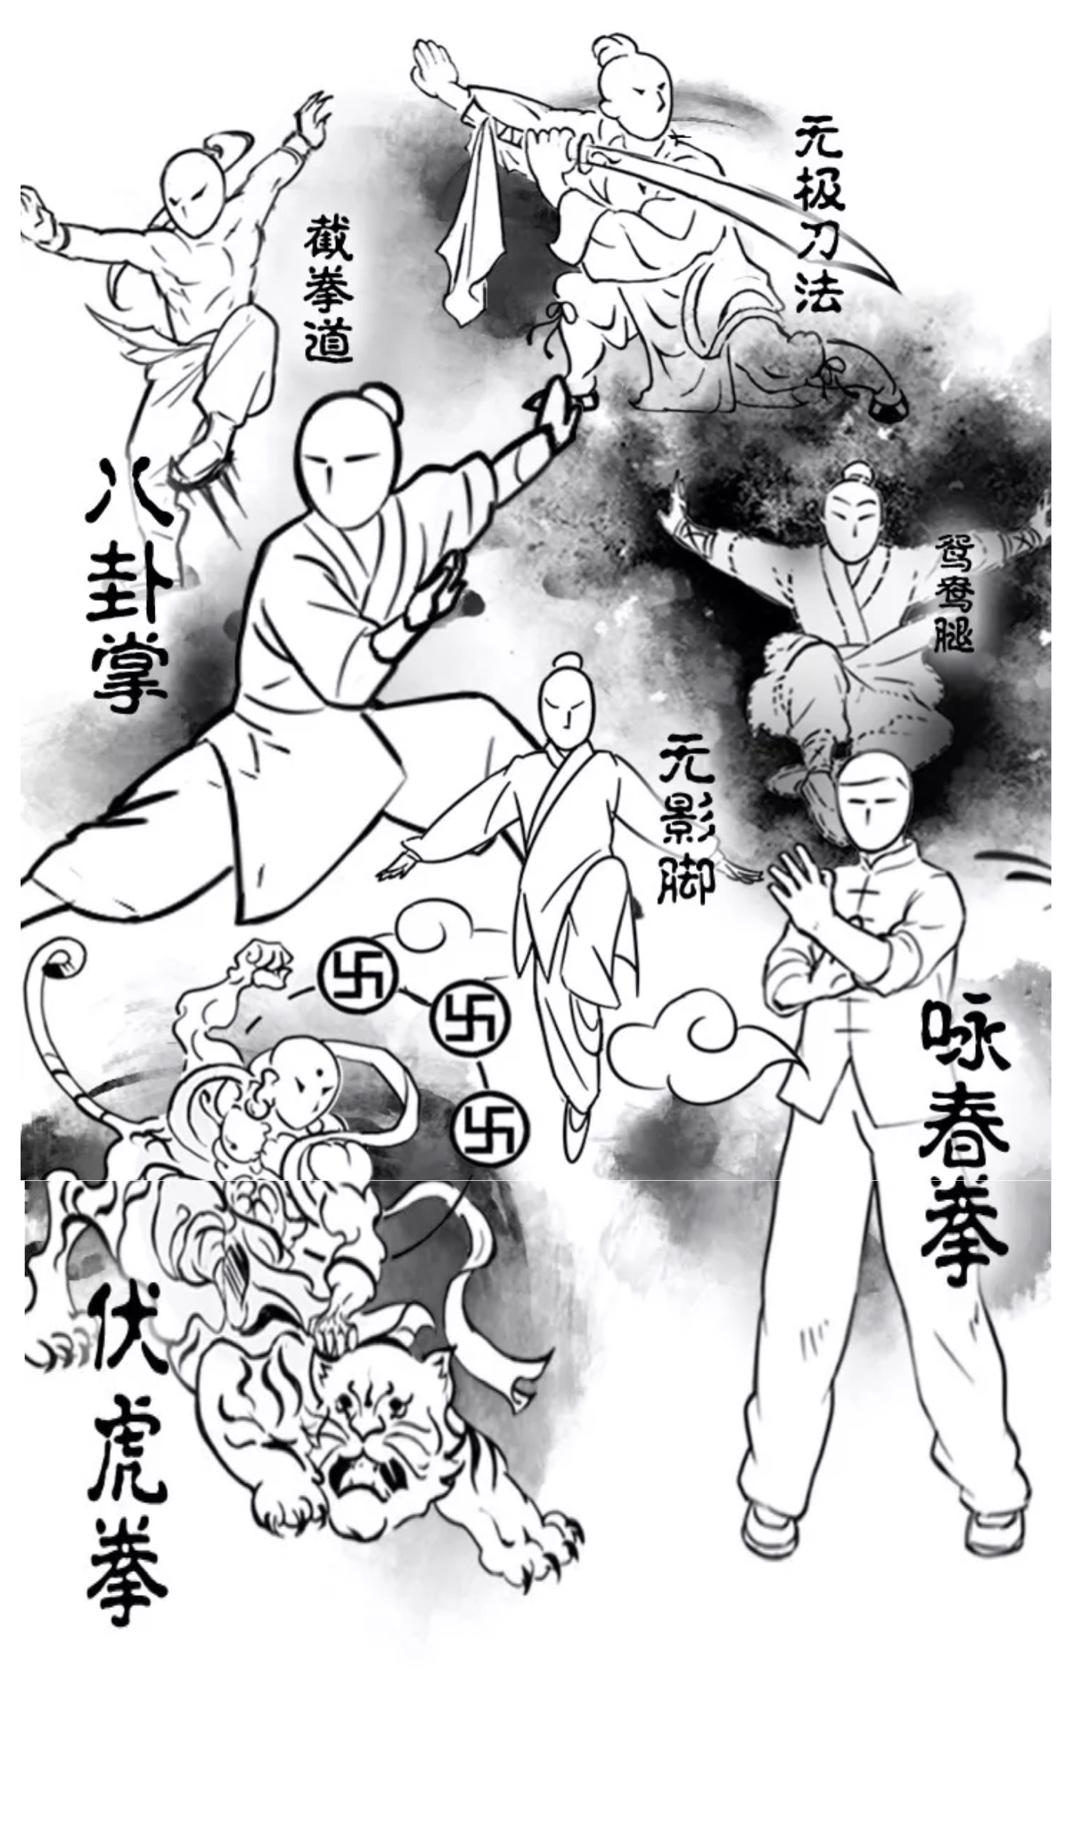 无极刀法
截拳道
八卦掌
鸳鸯腿
无影脚
咏春拳
卐
卐
卐
伏虎拳